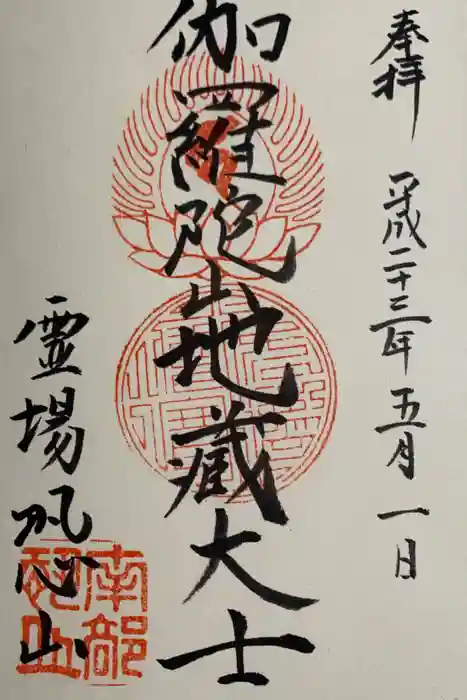 奉拝
平成二十三年五月一日
伽羅陀山地蔵大士
霊場恐山
南部
恐山